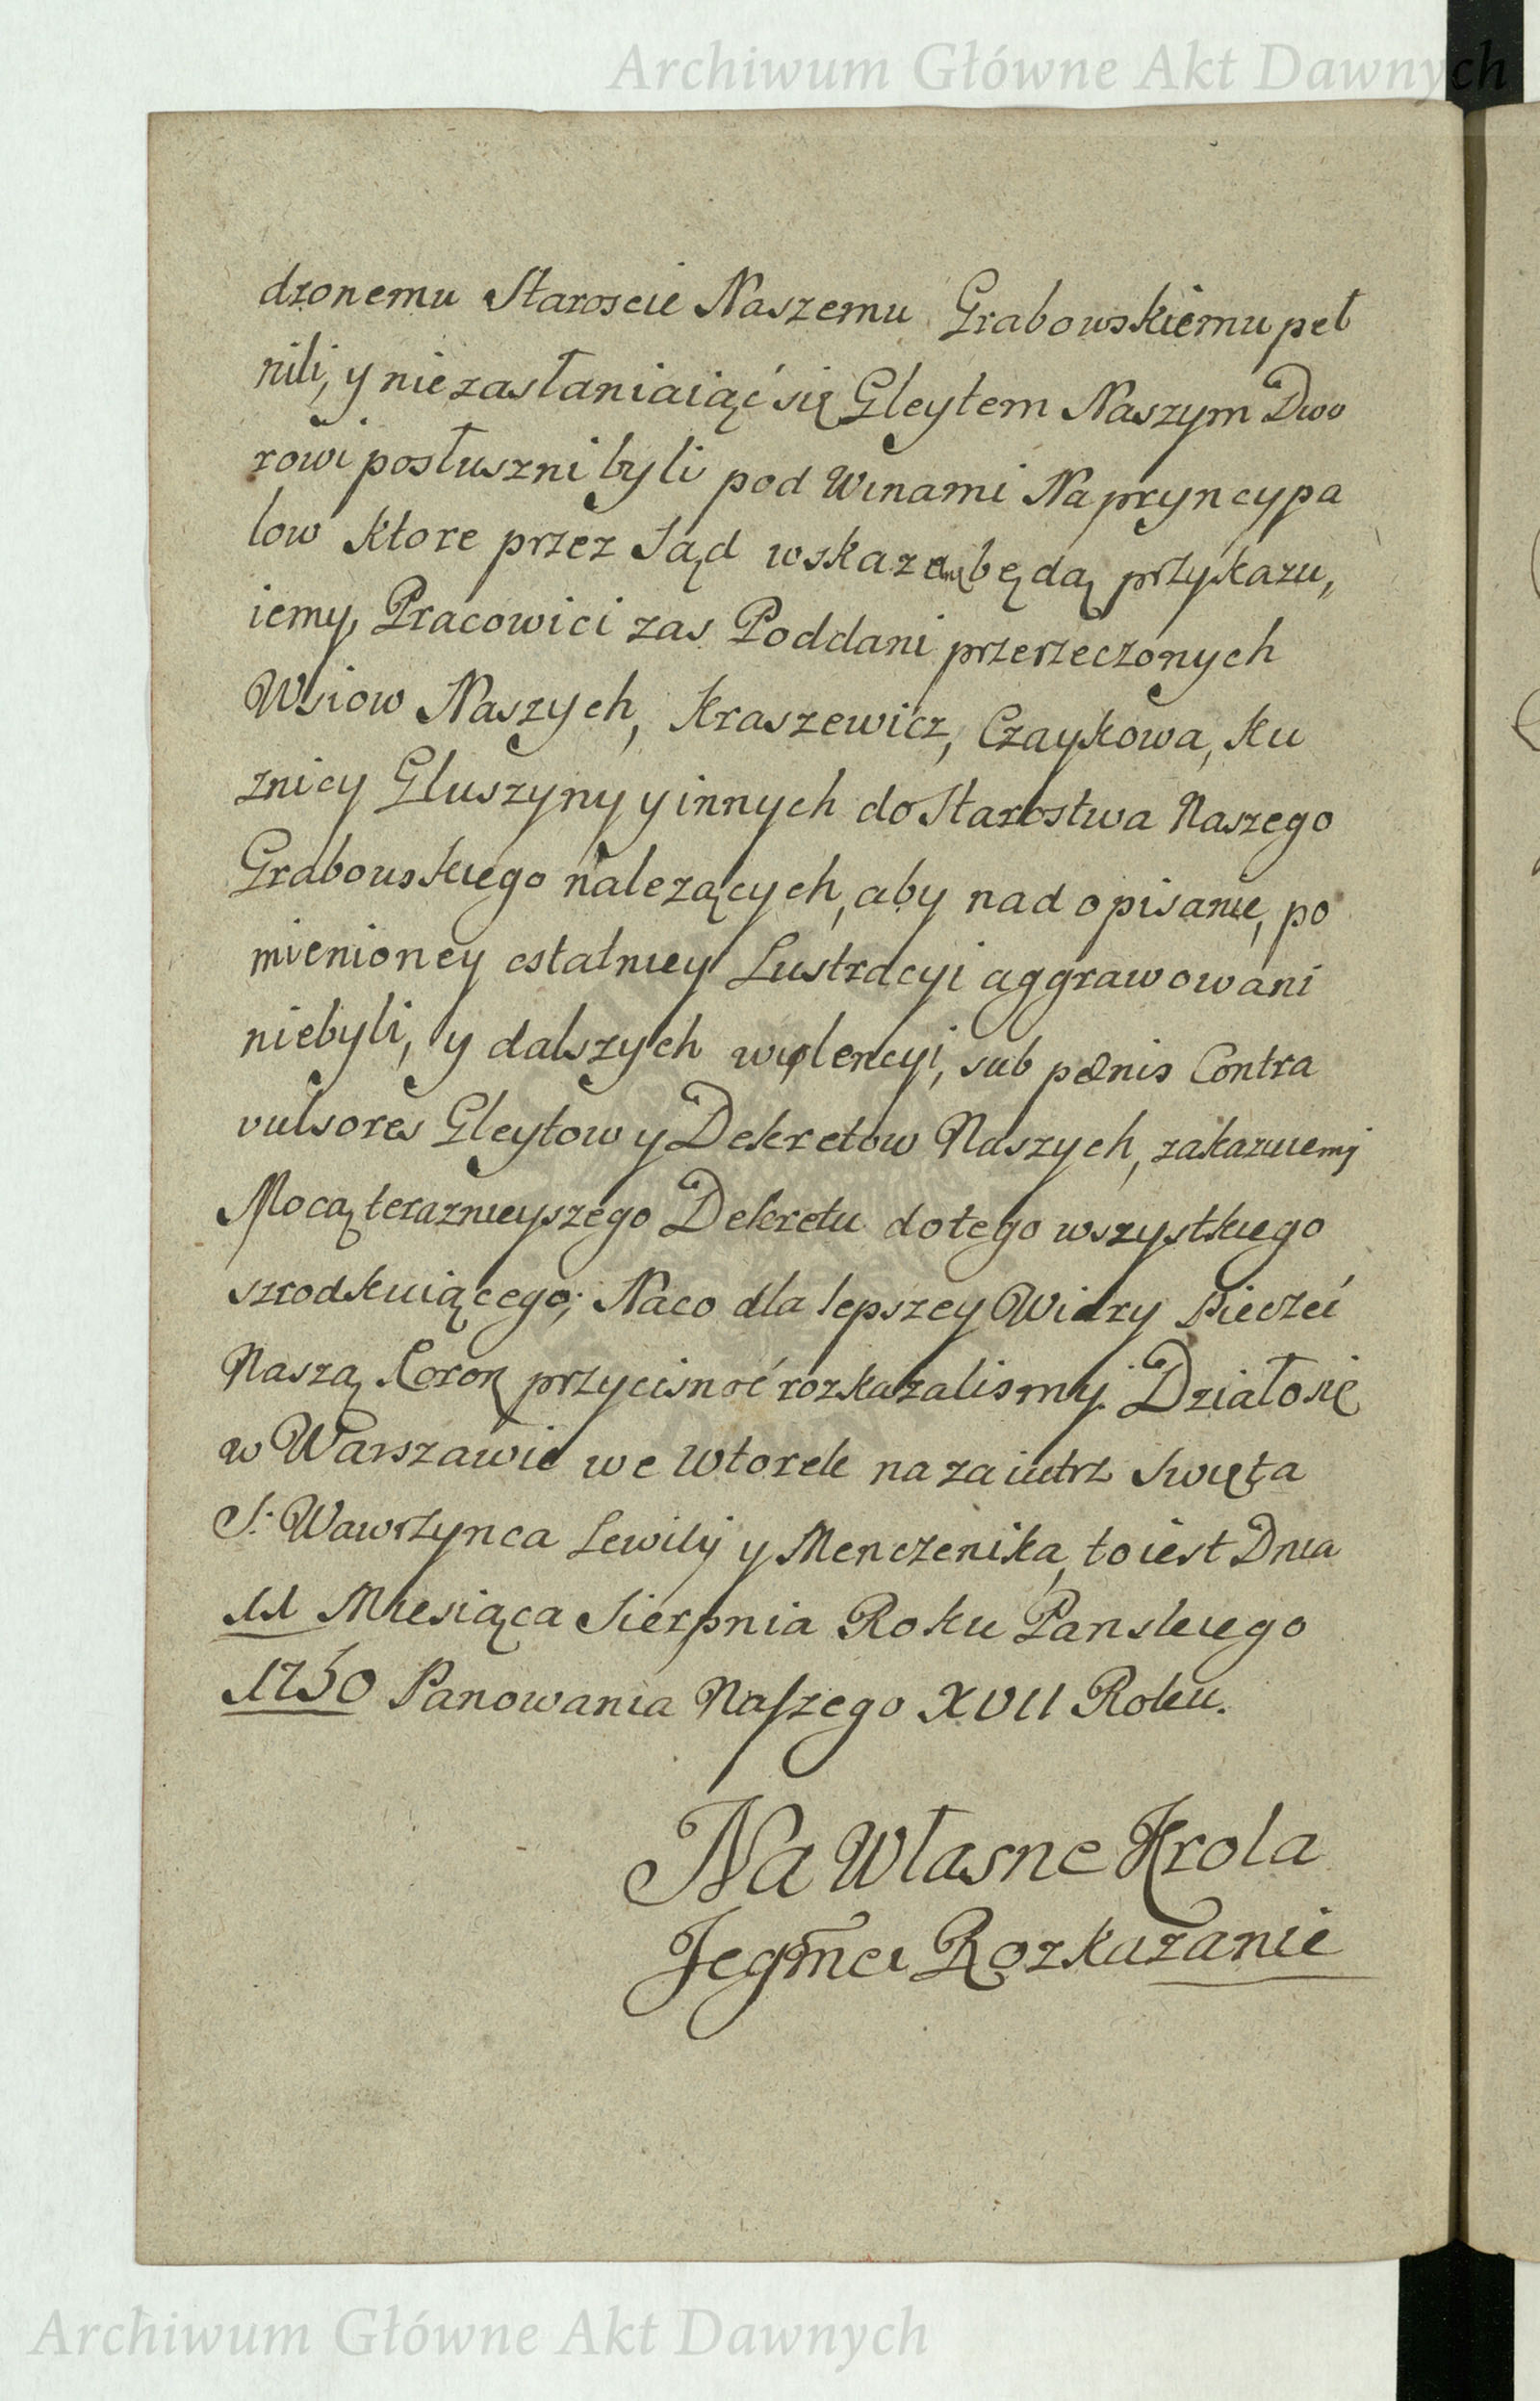 Archiwum Główne Akt Dawnych
dzonemu Staroscie Naszemu Grabowskiemu peł
nili, y niezasłaniaiąć się Gleytem Naszym Dwo
rowi posłuszni byli pod Winami Na pryncypa
low ktore przez Sąd wskazane będą przykazu„
iemy, Pracowici zas Poddani przerzeczonych
Wsiow Naszych, Kraszewicz, Czaykowa, Ku
znicy Głuszyny y innych do Starostwa Naszego
Grabowskiego nalezących, aby nad opisanie, po
mienioney ostatniey Lustracyi aggrawowani
niebyli, y dalszych wiolencyi, sub pœnis Contra
vulsores Gleytow y Dekretow Naszych, zakazuiemy
Mocą teraznieyszego Dekretu do tego wszystkiego
szrodkuiącego; Naco dla lepszey Wiary Pieczęć
Naszą Koron przycisnąć rozkazalismy. Działo się
w Warszawie we Wtorek nazaiutrz Swięta
S. Wawrzynca Lewity y Menczenika, to iest Dnia
11 Miesiąca Sierpnia Roku Panskiego
1750 Panowania Naszego XVII Roku.
Na Własne Krola
Jegm̃ci Rozkazanie
Archiwum Główne Akt Dawnych